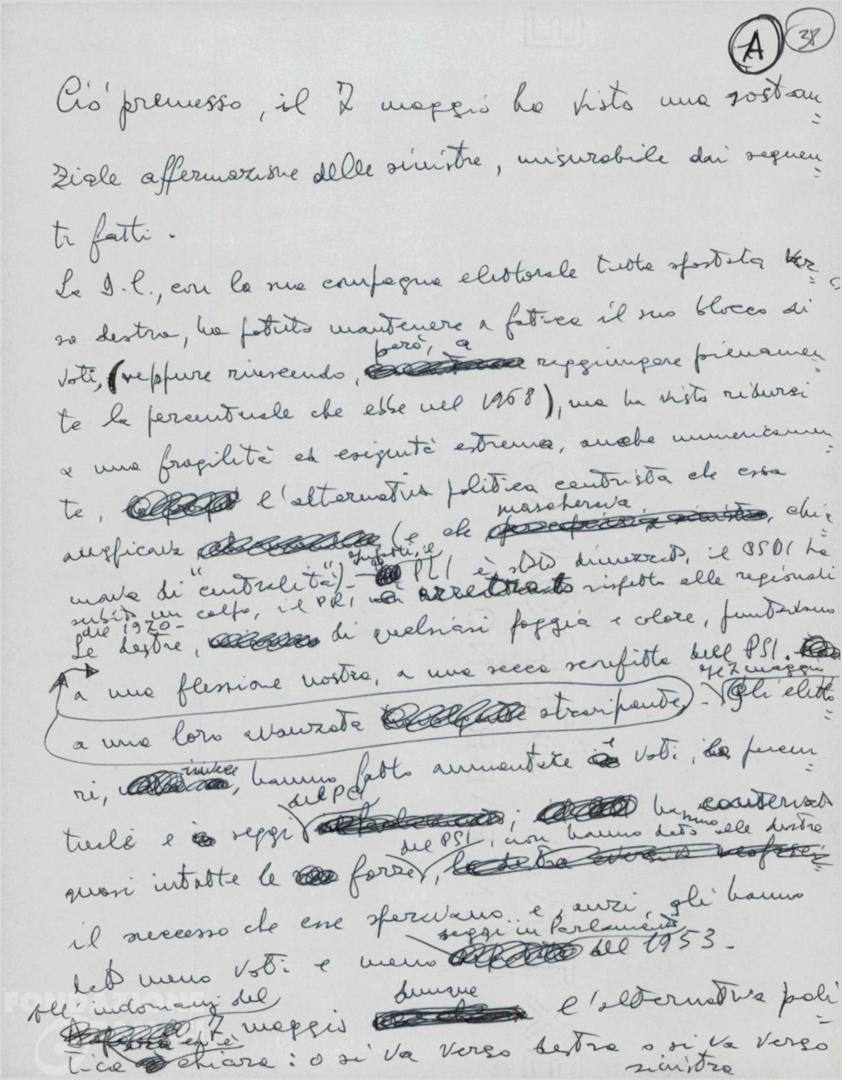 A 38
Ciò premesso, il 7 maggio ha visto una sostan=
ziale affermazione delle sinistre, misurabile dai seguen=
ti fatti.
La D.C., con la sua campagna elettorale tutta spostata ver=
so destra, ha potuto mantenere a fatica il suo blocco di
voti, (neppure riuscendo, però, a raggiungere pienamen=
te la percentuale che ebbe nel 1968), ma ha visto ridursi
a una fragilità ed esiguità estrema, anche numericamen=
te, l'alternativa politica centrista che essa
(e che mascherava, chia=
mava di "centralità") - infatti, il PLI è stato dimezzato, il PSDI ha
subito un colpo, il PRI è arretrato rispetto alle regionali
del 1970 -
Le destre, di qualsiasi foggia e colore, puntavano
a una flessione nostra, a una secca sconfitta del PSI.
a una loro avanzata straripante. - Il 7 maggio gli eletto=
ri, invece, hanno fatto aumentare i voti, la percen=
tuale e i seggi del PCI; hanno conservato
quasi intatte le forze del PSI, non hanno dato alle destre
il successo che esse speravano e, anzi, gli hanno
dato meno voti e meno seggi in Parlamento del 1953 -
All'indomani del
7 maggio dunque l'alternativa poli=
tica è chiara: o si va verso destra o si va verso
sinistra
FONDAZIONE